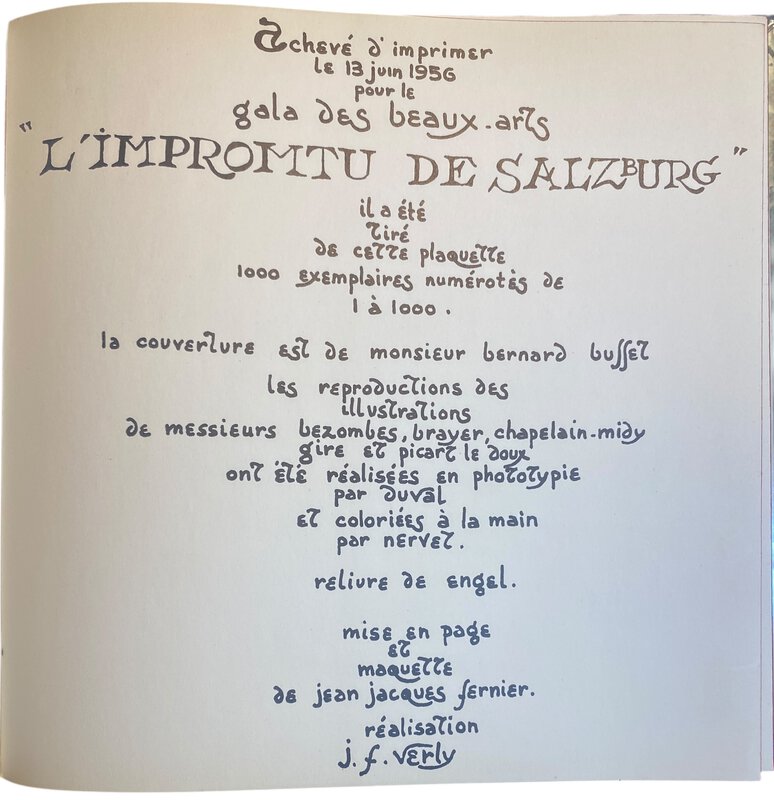 Achevé d'imprimer
le 13 juin 1956
pour le
gala des beaux-arts
"L'IMPROMTU DE SALZBURG"
il a été
tiré
de cette plaquette
1000 exemplaires numérotès de
1 à 1000.
la couverture est de monsieur bernard buffet
les reproductions des
illustrations
de messieurs bezombes, brayer, chapelain-midy
gire et picart le doux
ont été réalisées en phototypie
par duval
et coloriées à la main
par nervet.
reliure de engel.
mise en page
et
maquette
de jean jacques fernier.
réalisation
j. f. verly